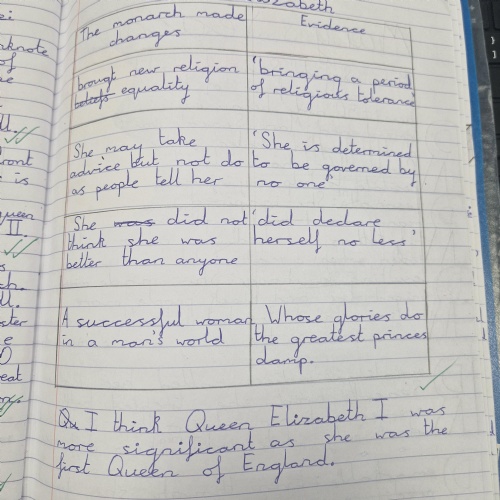 Elizabeth
The monarch made changes
Evidence
brougt new religion
beliefs equality
'bringing a period
of religious tolerance
She may take
advice but not do
as people tell her
'She is determined
to be governed by
no one'
She was did not
think she was
better than anyone
'did declare
herself no less'
A successful woman
in a man's world
Whose glories do
the greatest princes
damp.
Q2 I think Queen Elizabeth I was
more significant as she was the
first Queen of England.
of
ll.
front
is
Queen
II.
ll.
eat